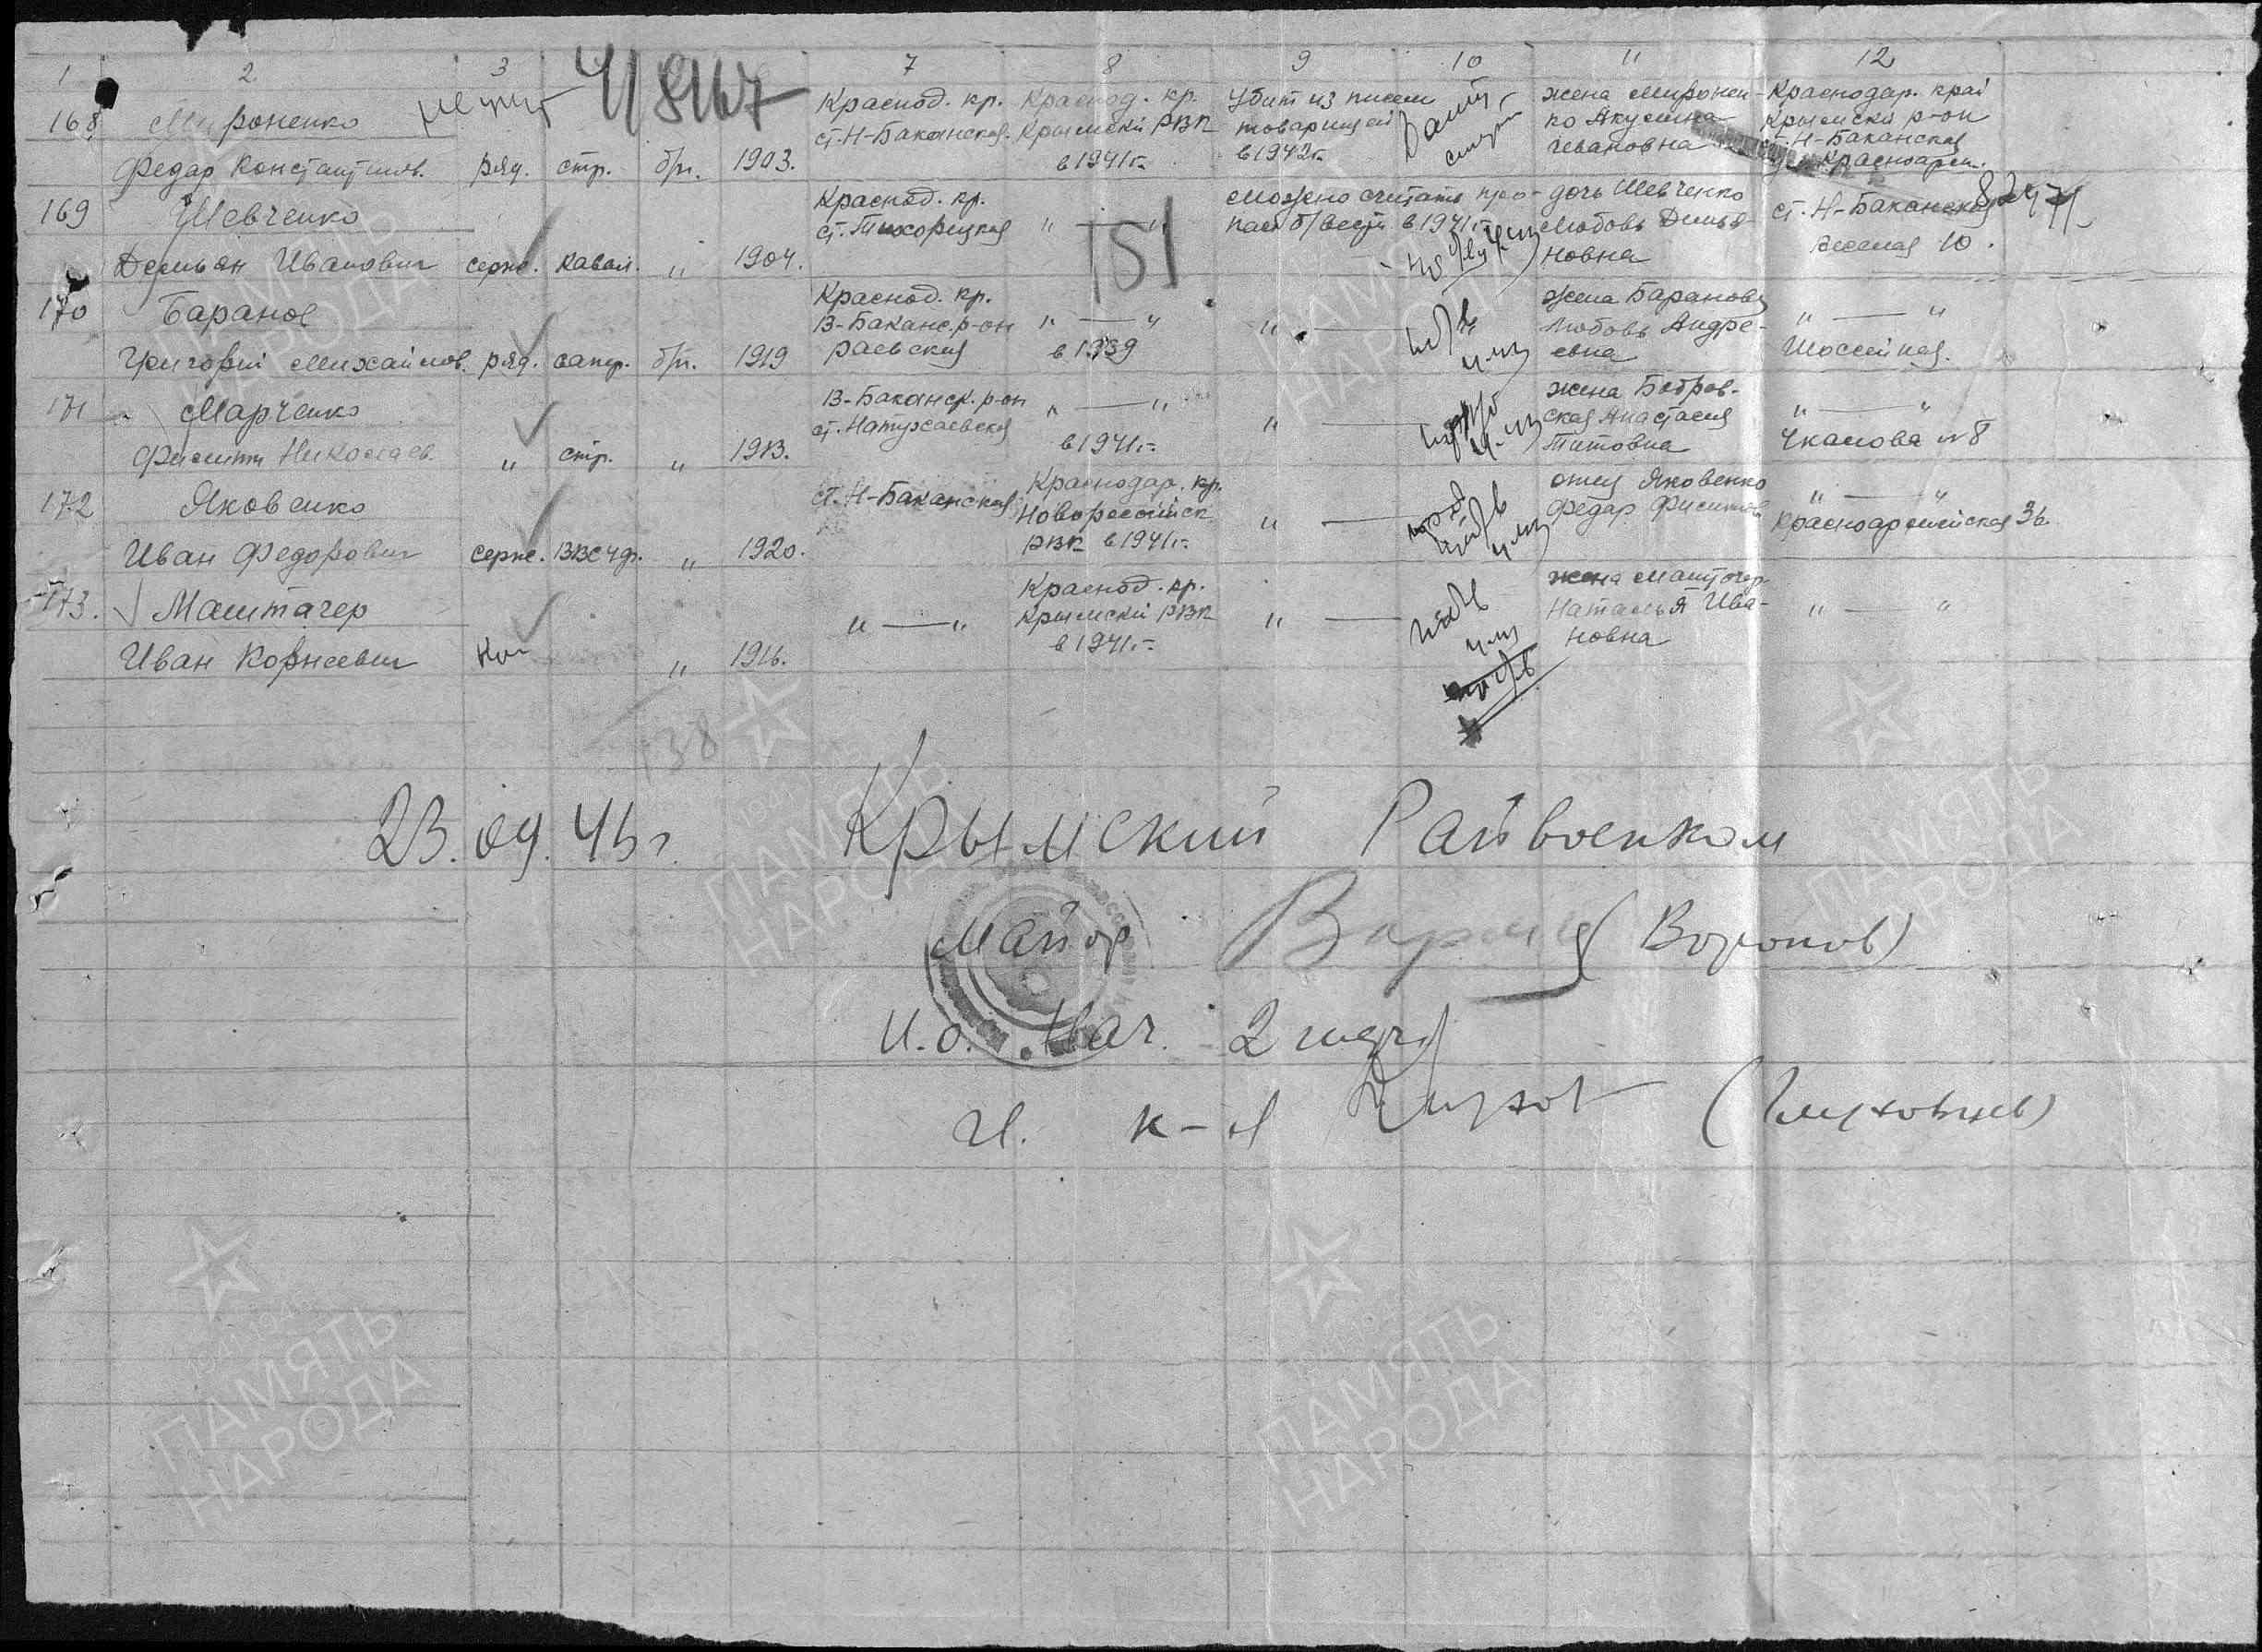 1 2 3 7 8 9 10 11 12
4/8167
168 Мироненко
Федар Константинов. ряд. стр. б/п. 1903.
Краснод. кр.
ст. Н-Баканская.
Краснод. кр.
Крымский РВК
в 1941 г.
Убит из писем
товарищей
в 1942 г.
жена Миронен-
ко Акулина
Ивановна
Краснодар. край
Крымский р-он
ст. Н-Баканская
Красноарм.
169 Шевченко
Демьян Иванович серж. кавал. " 1904.
Краснод. кр.
ст. Тихорецкая
" — "
Можно считать про-
пав б/вести в 1941 г.
дочь Шевченко
Любовь Демья-
новна
ст. Н-Баканская
10.
82471
151
170 Баранов
Григорий Михайлов. ряд. сапер. б/п. 1919
Краснод. кр.
В-Баканс. р-он
Раевская
" — "
в 1939
" —
жена Баранова
Любовь Андре-
евна
" — "
Шоссейная.
171 Марченко
Филипп Николаев. " стр. " 1913.
В-Баканск. р-он
ст. Натухаевская
" — "
в 1941 г.
" —
жена Бобров-
ская Анастасия
Титовна
" — "
Чкалова № 8
172 Яковенко
Иван Федорович серж. " 1920.
ст. Н-Баканская
Краснодар. кр.
Новороссийск
РВК в 1941 г.
" —
отец Яковенко
Федар Филиппов
" — "
Красноармейская 36.
173. Маштачер
Иван Корнеевич " 1916.
" — "
Краснод. кр.
Крымский РВК
в 1941 г.
" —
жена Маштачер
Наталья Ива-
новна
" — "
138
23.09.46 г. Крымский Райвоенком
майор (Воронов)
И.о. Нач. 2 части
(Глуховцев)
ПАМЯТЬ
НАРОДА